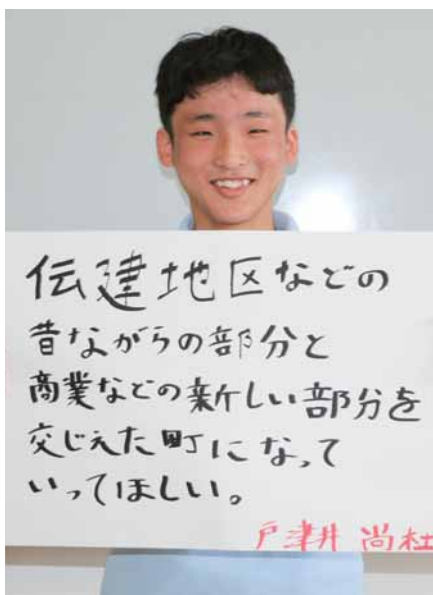 伝建地区などの
昔ながらの部分と
商業などの新しい部分を
交じえた町になって
いってほしい。
戸津井 尚杜